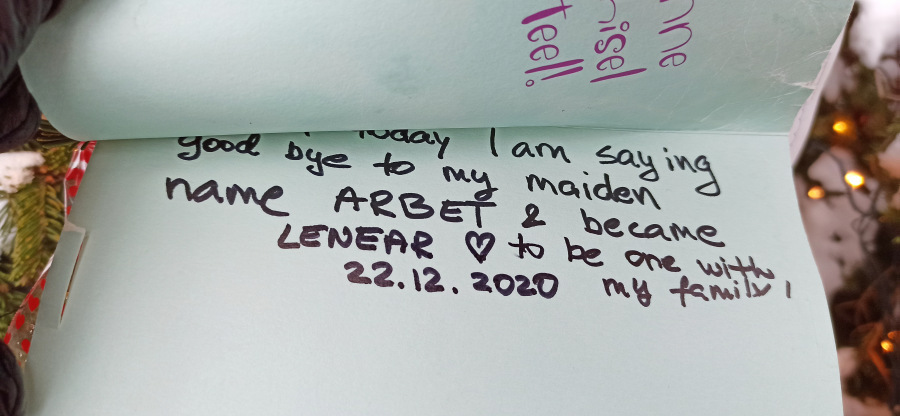 teel!
today I am saying
good bye to my maiden
name ARBET & became
LENEAR ♡ to be one with
22.12.2020 my family!